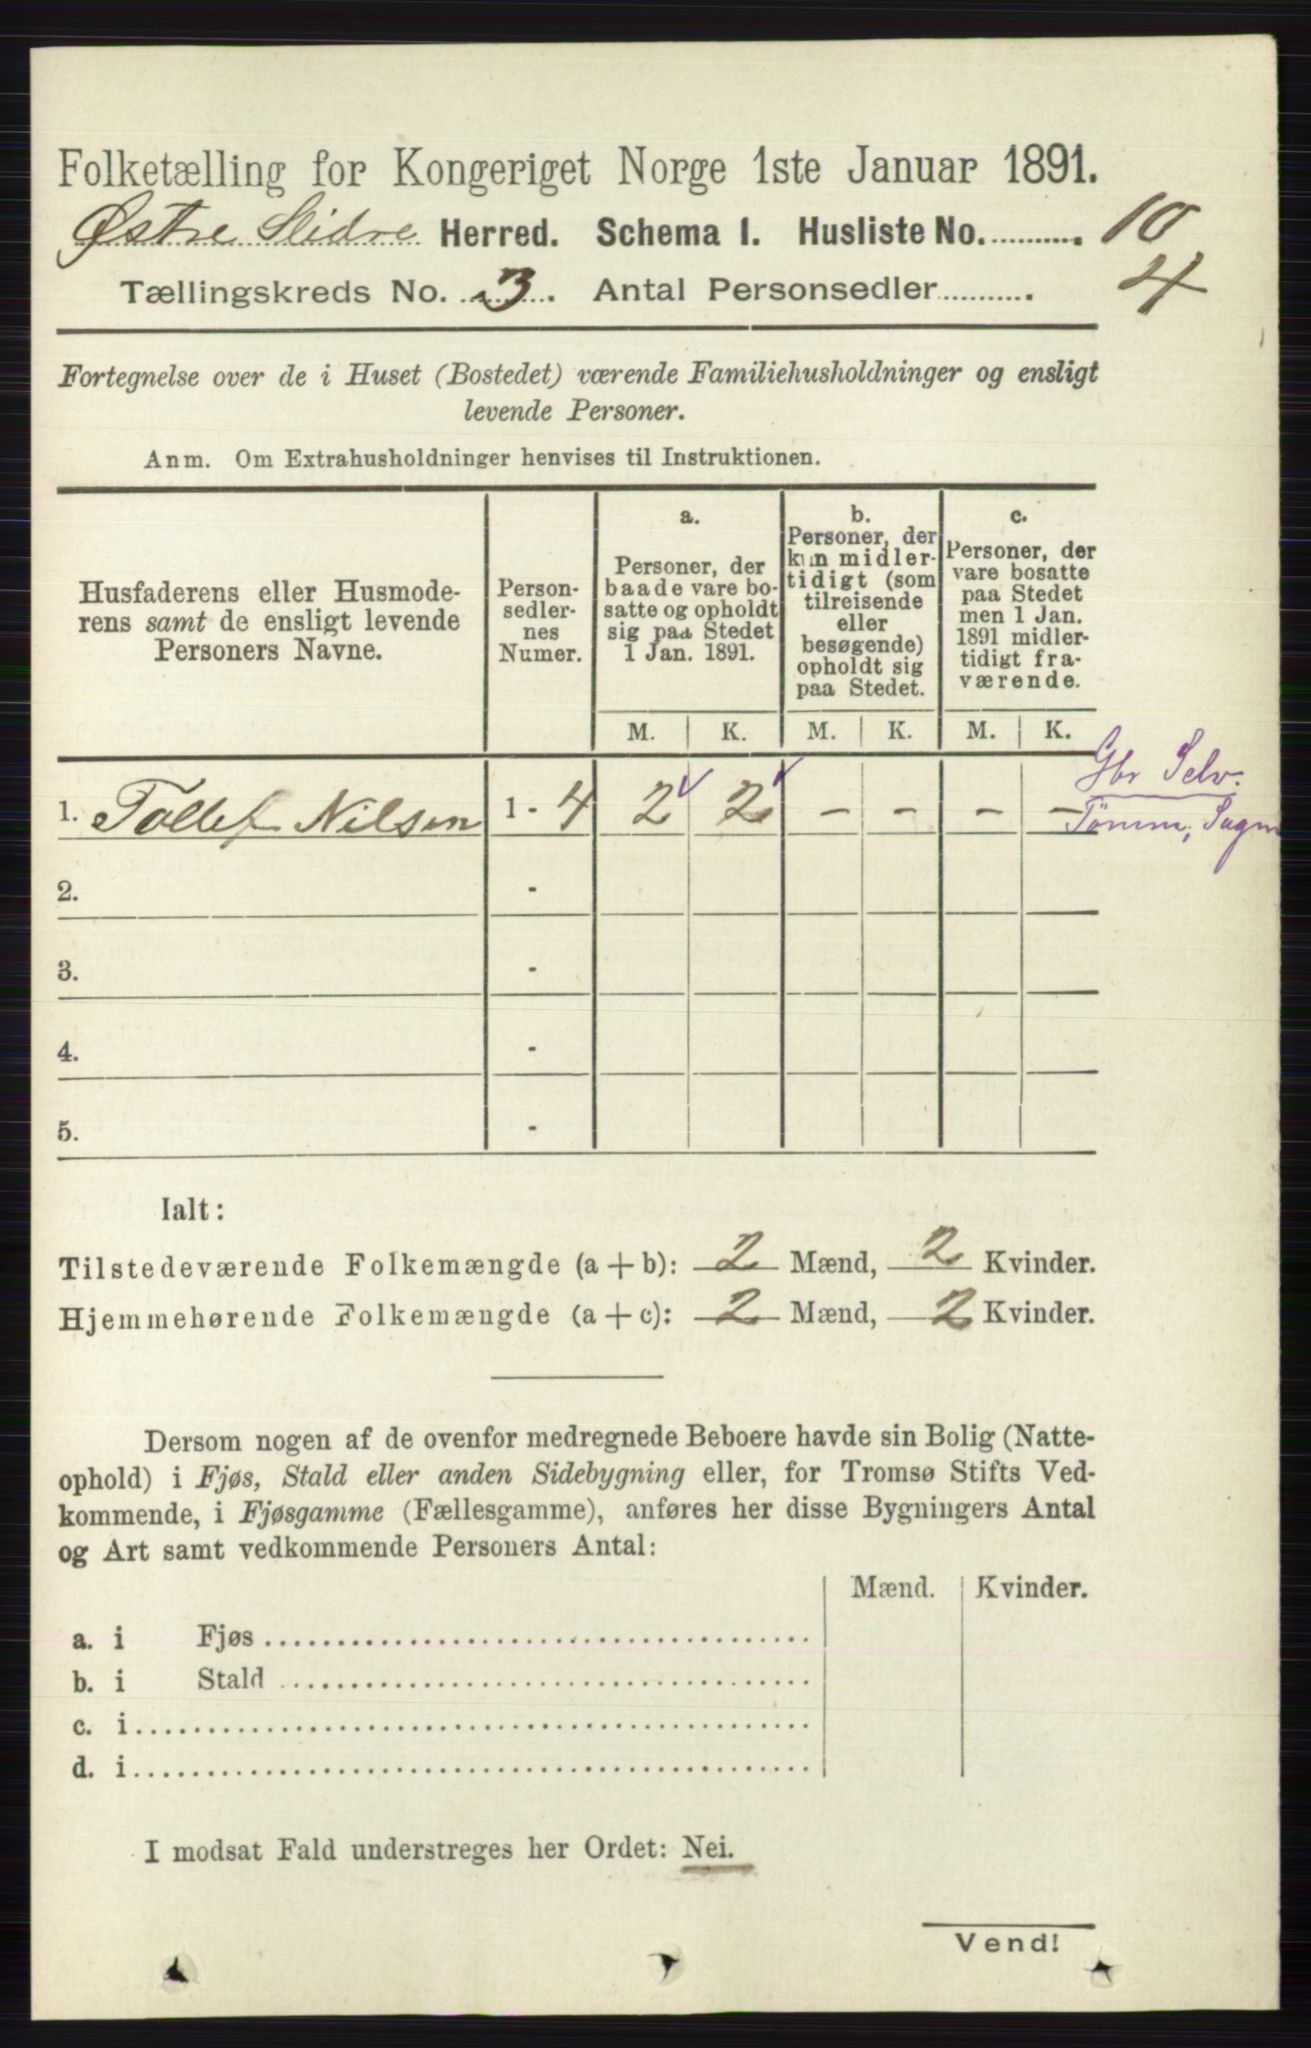 Folketælling for Kongeriget Norge 1ste Januar 1891.
Østre Slidre Herred. Schema I. Husliste No. 10
Tællingskreds No. 3. Antal Personsedler 4
Fortegnelse over de i Huset (Bostedet) værende Familiehusholdninger og ensligt
levende Personer.
Anm. Om Extrahusholdninger henvises til Instruktionen.
Husfaderens eller Husmode-
rens samt de ensligt levende
Personers Navne.
Person-
sedler-
nes
Numer.
a.
Personer, der
baade vare bo-
satte og opholdt
sig paa Stedet
1 Jan. 1891.
b.
Personer, der
kun midler-
tidigt (som
tilreisende
eller
besøgende)
opholdt sig
paa Stedet.
c.
Personer, der
vare bosatte
paa Stedet
men 1 Jan.
1891 midler-
tidigt fra-
værende.
M. K. M. K. M. K.
Gbr Selv.
1. Tollef Nilsen 1 - 4 2 2 - - - -
Tömm, Sagm
2. -
3. -
4. -
5. -
Ialt:
Tilstedeværende Folkemængde (a + b): 2 Mænd, 2 Kvinder.
Hjemmehørende Folkemængde (a + c): 2 Mænd, 2 Kvinder.
Dersom nogen af de ovenfor medregnede Beboere havde sin Bolig (Natte-
ophold) i Fjøs, Stald eller anden Sidebygning eller, for Tromsø Stifts Ved-
kommende, i Fjøsgamme (Fællesgamme), anføres her disse Bygningers Antal
og Art samt vedkommende Personers Antal:
Mænd. Kvinder.
a. i Fjøs
b. i Stald
c. i
d. i
I modsat Fald understreges her Ordet: Nei.
Vend!